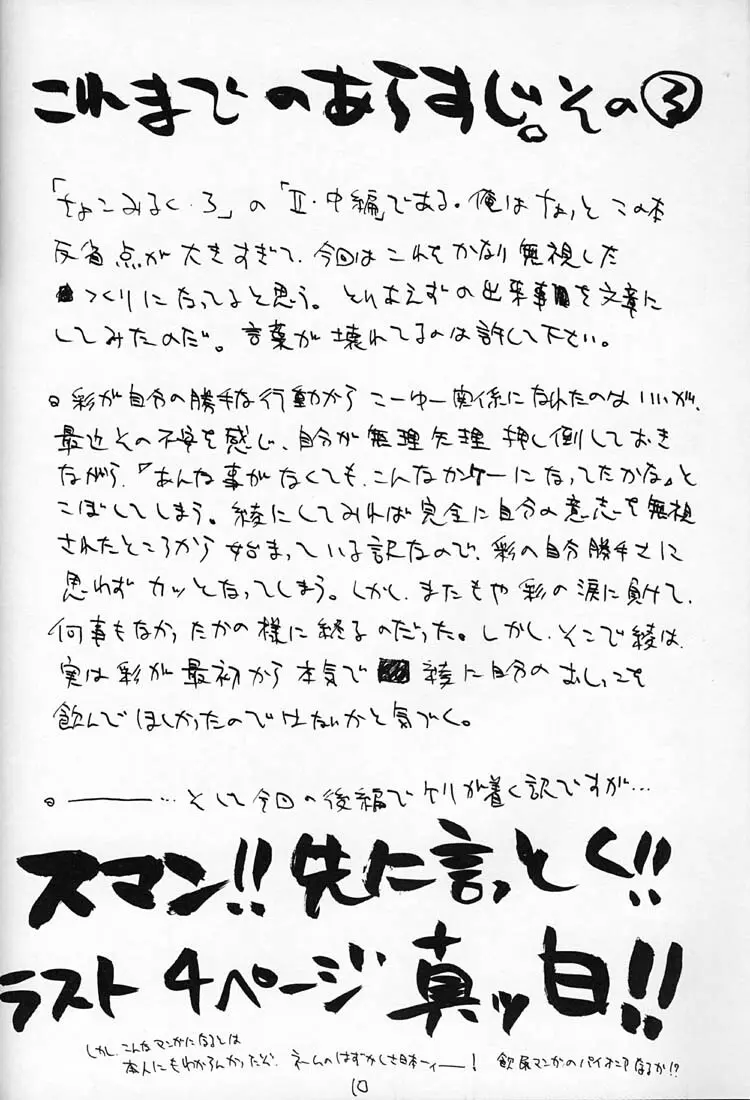 これまでのあらすじ。その③
「ちょこみるく・3」の「Ⅱ・中編」である。俺はちょっとこの本
反省点が大きすぎて、今回はこれをかなり無視した
つくりになってると思う。とりあえずの出来事を文章に
してみたのだ。言葉が壊れてるのは許して下さい。
○彩が自分の勝手な行動からこーゆー関係になれたのはいいが、
最近その不安を感じ、自分が無理矢理押し倒しておき
ながら、『あんな事がなくても、こんなカンケーになってたかな』と
こぼしてしまう。綾にしてみれば完全に自分の意志を無視
されたところから始まっている訳なので、彩の自分勝手さに
思わずカッとなってしまう。しかし、またもや彩の涙に負けて、
何事もなかったかの様に終るのだった。しかし、そこで綾は、
実は彩が最初から本気で綾に自分のおしっこを
飲んでほしかったのではないかと気づく。
○―――…そして今回の後編でケリが着く訳ですが…
スマン!!先に言っとく!!
ラスト4ページ真ッ白!!
しかし、こんなマンガになるとは
本人にもわからんかったぞ。ネームのはずかしさ日本一ィ――! 飲尿マンガのパイオニアなるか!?
10